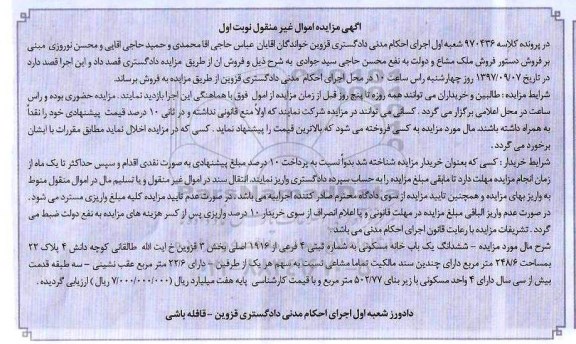 آگهی مزایده اموال غیر منقول نوبت اول
در پرونده کلاسه ۹۷۰۴۳۶ شعبه اول اجرای احکام مدنی دادگستری قزوین خواندگان آقایان عباس حاجی آقا محمدی و حمید حاجی آقایی و محسن نوروزی مبنی
بر فروش دستور فروش ملک مشاع و دولت به نفع محسن حاجی سید جوادی به شرح ذیل و فروش آن از طریق مزایده دادگستری قصد داد و این اجرا قصد دارد
در تاریخ ۱۳۹۷/۰۹/۰۷ روز چهارشنبه راس ساعت ۱۰ در محل اجرای احکام مدنی دادگستری قزوین از طریق مزایده به فروش برساند.
شرایط مزایده: طالبین و خریداران می توانند همه روزه تا پنج روز قبل از زمان مزایده از اموال فوق با هماهنگی این اجرا بازدید نمایند. مزایده حضوری بوده و راس
ساعت در محل اعلامی برگزار می گردد. کسانی می توانند در مزایده شرکت نمایند که اولاً منع قانونی نداشته و در ثانی ۱۰ درصد قیمت پیشنهادی خود را نقداً
به همراه داشته باشند. مال مورد مزایده به کسی فروخته می شود که بالاترین قیمت را پیشنهاد نماید. کسی که در مزایده اخلال نماید مطابق مقررات با ایشان
برخورد می گردد.
شرایط خریدار: کسی که بعنوان خریدار مزایده شناخته شد بدواً نسبت به پرداخت ۱۰ درصد مبلغ پیشنهادی به صورت نقدی اقدام و سپس حداکثر تا یک ماه از
زمان انجام مزایده مهلت دارد تا مابقی مبلغ مزایده را به حساب سپرده دادگستری واریز نمایند. انتقال سند در اموال غیر منقول و یا تسلیم مال در اموال منقول منوط
به واریز بهای مزایده و همچنین تایید مزایده از سوی دادگاه محترم صادر کننده اجراییه می باشد. در صورت عدم تایید مزایده کلیه مبلغ واریزی مسترد می شود.
در صورت عدم واریز الباقی مبلغ مزایده در مهلت قانونی و یا اعلام انصراف از سوی خریدار ۱۰ درصد واریزی پس از کسر هزینه های مزایده به نفع دولت ضبط می
گردد. تشریفات مزایده با رعایت قانون اجرای احکام مدنی می باشد.
شرح مال مورد مزایده - ششدانگ یک باب خانه مسکونی به شماره ثبتی ۴ فرعی از ۱۹۱۶ اصلی بخش ۳ قزوین خ آیت الله طالقانی کوچه دانش ۴ پلاک ۲۲
بمساحت ۲۴۸/۶ متر مربع دارای چندین سند مالکیت تماما مشاعی نسبت به سهم هر یک از طرفین - دارای ۲۲/۶ متر مربع عقب نشینی - سه طبقه قدمت
بیش از سی سال دارای ۴ واحد مسکونی با زیر بنای ۵۰۲/۷۷ متر مربع و با قیمت کارشناسی پایه هفت میلیارد ریال (۷/۰۰۰/۰۰۰/۰۰۰ ریال) ارزیابی گردیده.
دادورز شعبه اول اجرای احکام مدنی دادگستری قزوین - قافله باشی